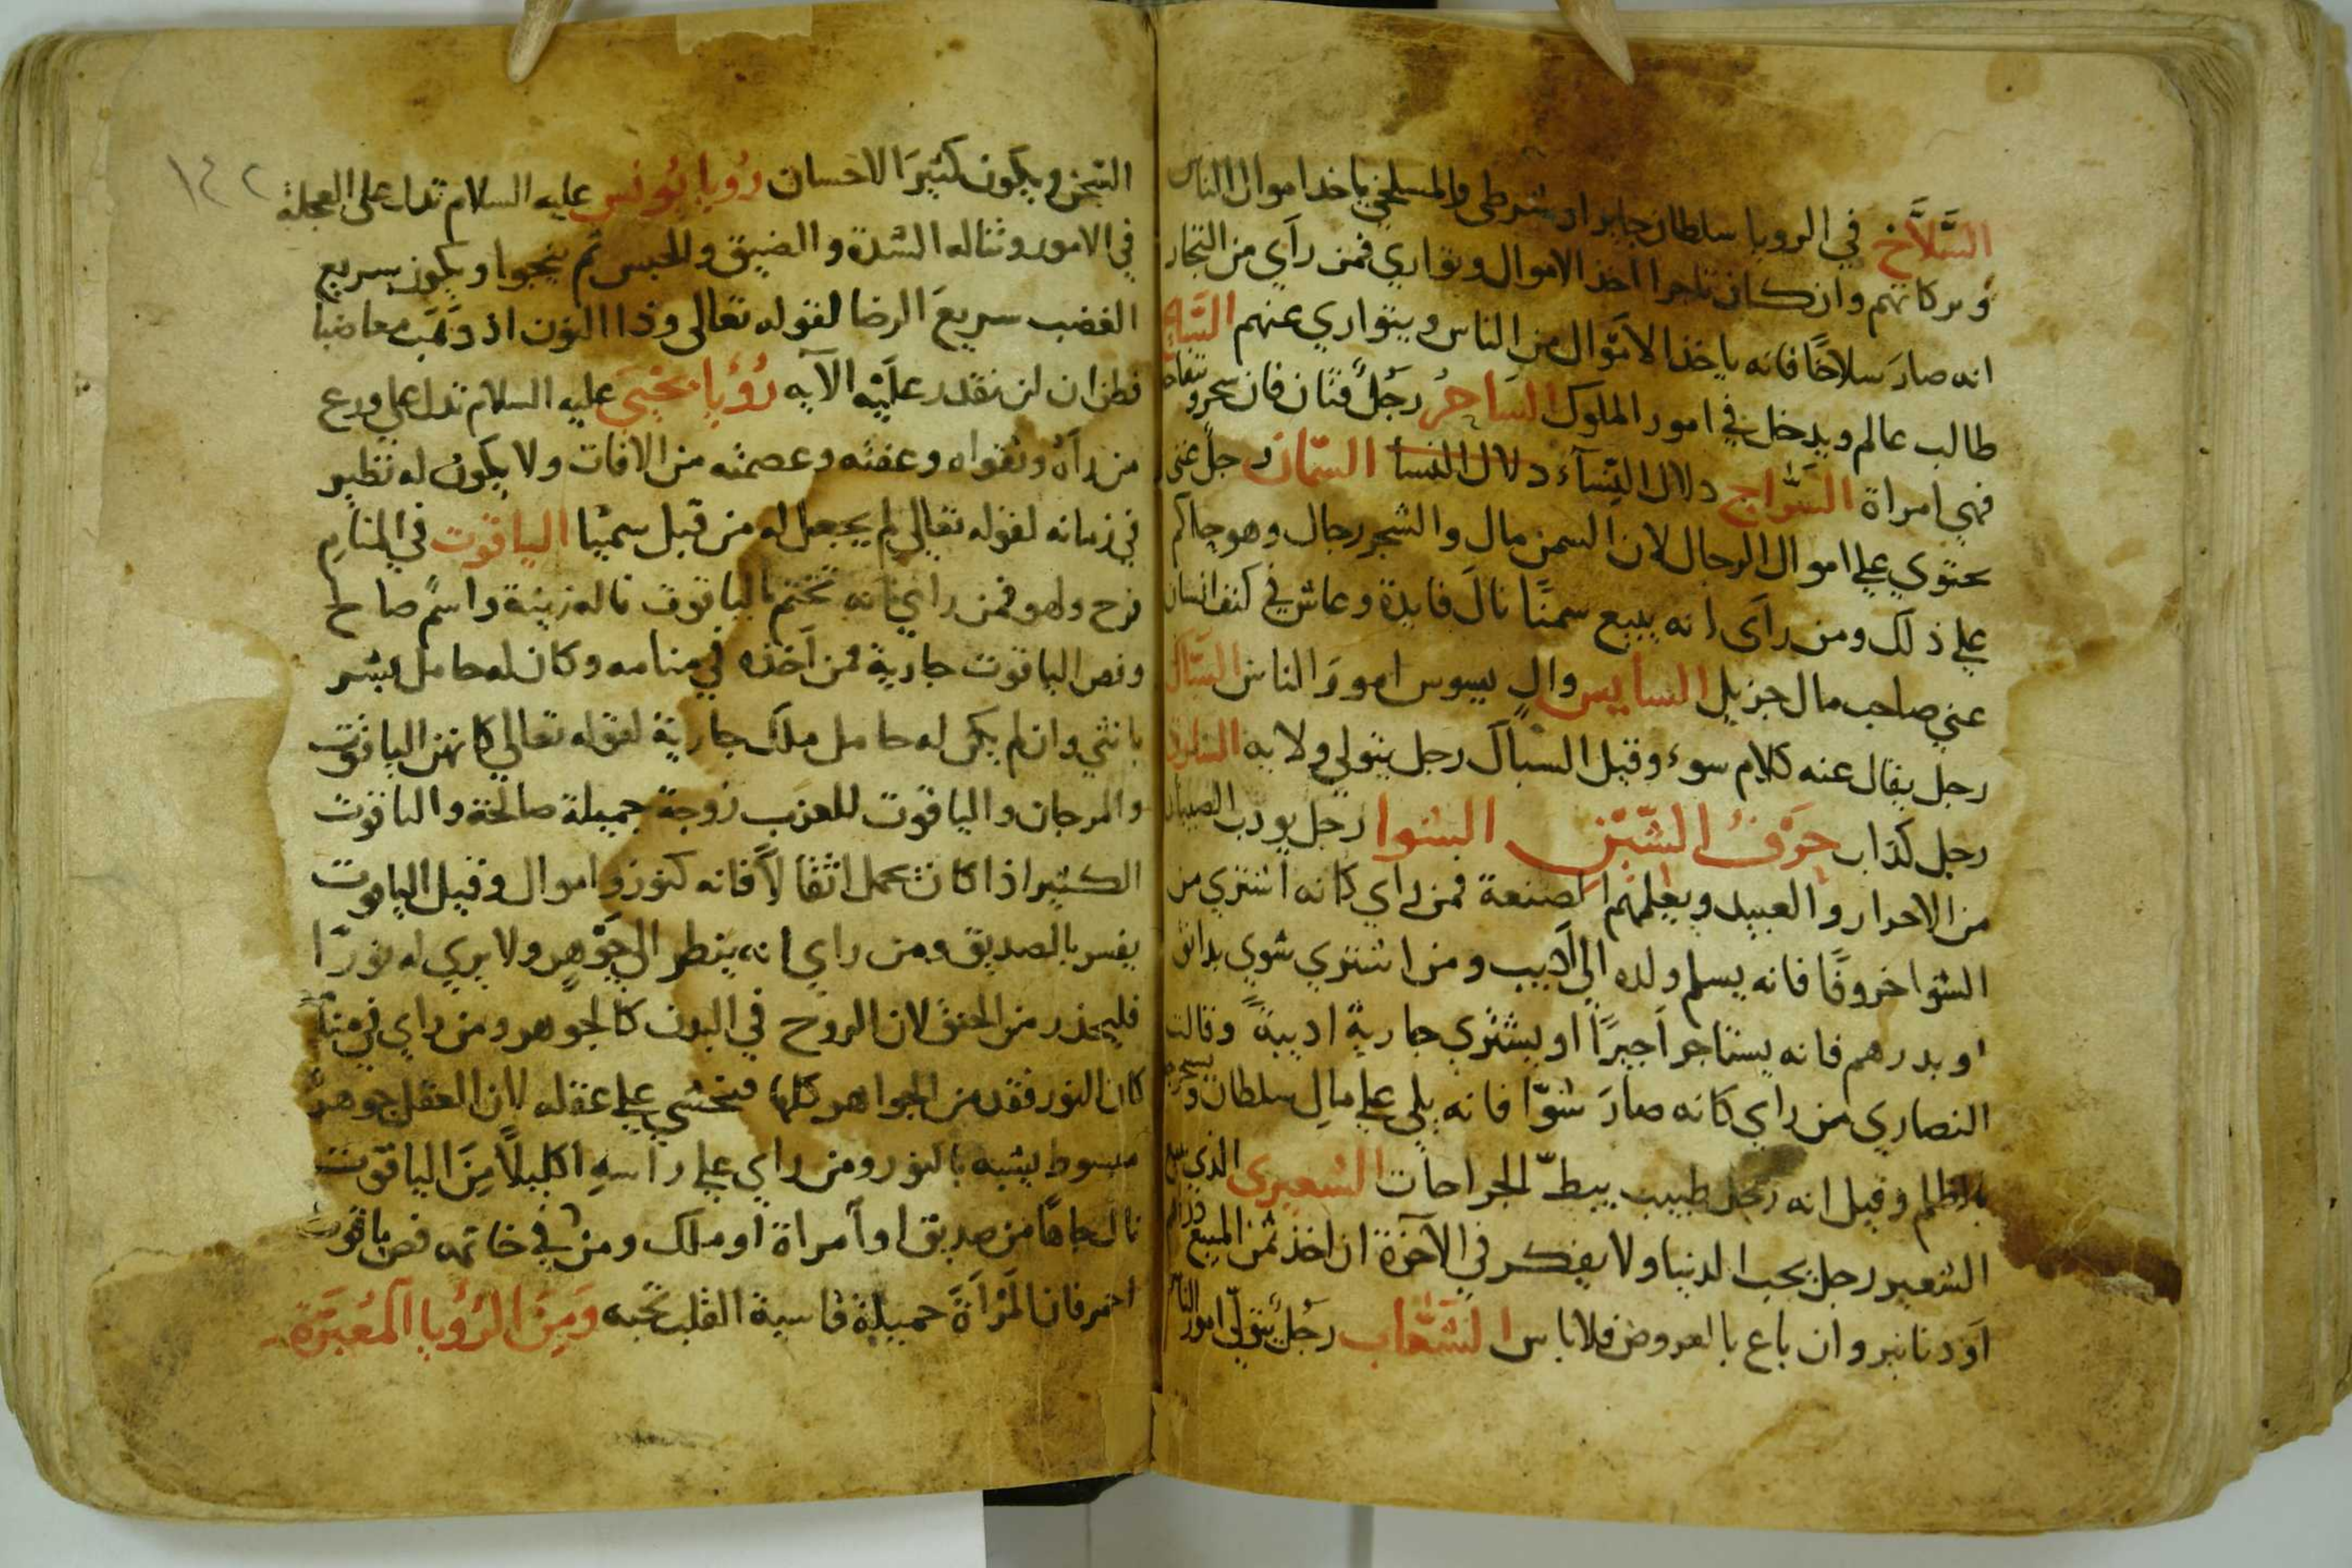 السَّلاَّخ في الرويا سلطان جاير او شرطي والمسلخي ياخد اموال الناس
و بركاتهم وان كان تاجرا اخذ الاموال وتواري فمن رآي من التجار
انه صارَ سلاخًا فانه ياخذ الاَموال من الناس ويتواري عنهم
طالب عالم ويدخل في امور الملوك السَاحرُ رجلٌ فتان فان سحر
فهي امراة السَّراج دلال النِّسآء دلال النسأ السمّان رجل غني
يحتوي علي اموال الرجال لان السمن مال والشجر رجال وهو حاكم
علي ذلك ومن رآَى انه يبيع سمنًا نالَ فايدة وعاش في كنف انسان
غني صاحب مال جزيل السايس والٍ يسوس امورَ الناس السبّاك
رجل يقال عنه كلام سوء وقيل السباك رجل يتولي ولايه
رجل كذاب حَرفُ الشّين الشوا رجل يودب الصبيان
من الاحرار والعبيد ويعلمهم الصنعة فمن راي كانه اشتري من
الشوا خروفًا فانه يسلم ولده الي اَديب ومن اشتري شوي بدانق
او بدرهم فانه يستاجر اَجيرًا او يشتري جارية اديبةً وقالت
النصاري من راي كانه صارَ شوّا فانه يلي علي مالِ سلطان
وقيل انه رجل طبيب يبطّ الجراحات الشعيري الذي
الشعير رجل يحب الدنيا ولا يفكر في الآخرة ان اخذ ثمن المبيع
اَو دنانير وان باع بالعروض فلا باس الشعّاب رجلٌ يتولّي امور الناس

١٤٢
السجن ويكون كثيرَ الاحسان رُويا يُونس عليه السلام تدل على العجلة
في الامور وتناله الشدة والضيق والحبس ثم ينجوا ويكون سريع
الغضب سريعَ الرضا لقوله تعالى وذا النون اذ ذهب مغاضبا
فظن ان لن نقدر علَيْه الآيه رُؤيا يَحيَى عليه السلام تدل علي ورع
من رآهُ وتقواه وعفته وعصمته من الافات ولا يكون له نظير
في زمانه لقوله تعالي لم يجعل له من قبل سميّا الياقوت في المنام
فرح ولهو فمن راي انه تختم بالياقوت ناله زينة واسمٌ صالح
وفص الياقوت جارية فمن اَخذه في منامه وكان له حامل يبشر
بانثي وان لم يكن له حامل ملك جارية لقوله تعالي كانهن الياقوت
والمرجان والياقوت للعزب زوجة جميلة صالحة والياقوت
الكثير اذا كان يحمل اثقالاً فانه كنوز واموال وقيل الياقوت
يفسر بالصديق ومن راي انه ينظر الي جوهرٍ ولا يري له نورًا
فليحذر من الخنق لان الروح في البدن كالجوهر ومن راي في منامه
كان النور فقد من الجواهر كلها فيخشي علي عقله لان العقل جوهر
مبسوط يشبه بالنور ومن راي علي راسهِ اكليلاً مِنَ الياقوت
نال جاهًا من صديق او اَمراة او ملك ومن في خاتمه فص ياقوت
احمر فان له مراَةً جميلة قاسية القلب تحبه وَمِنَ الرُؤيا المُعَبَرَة